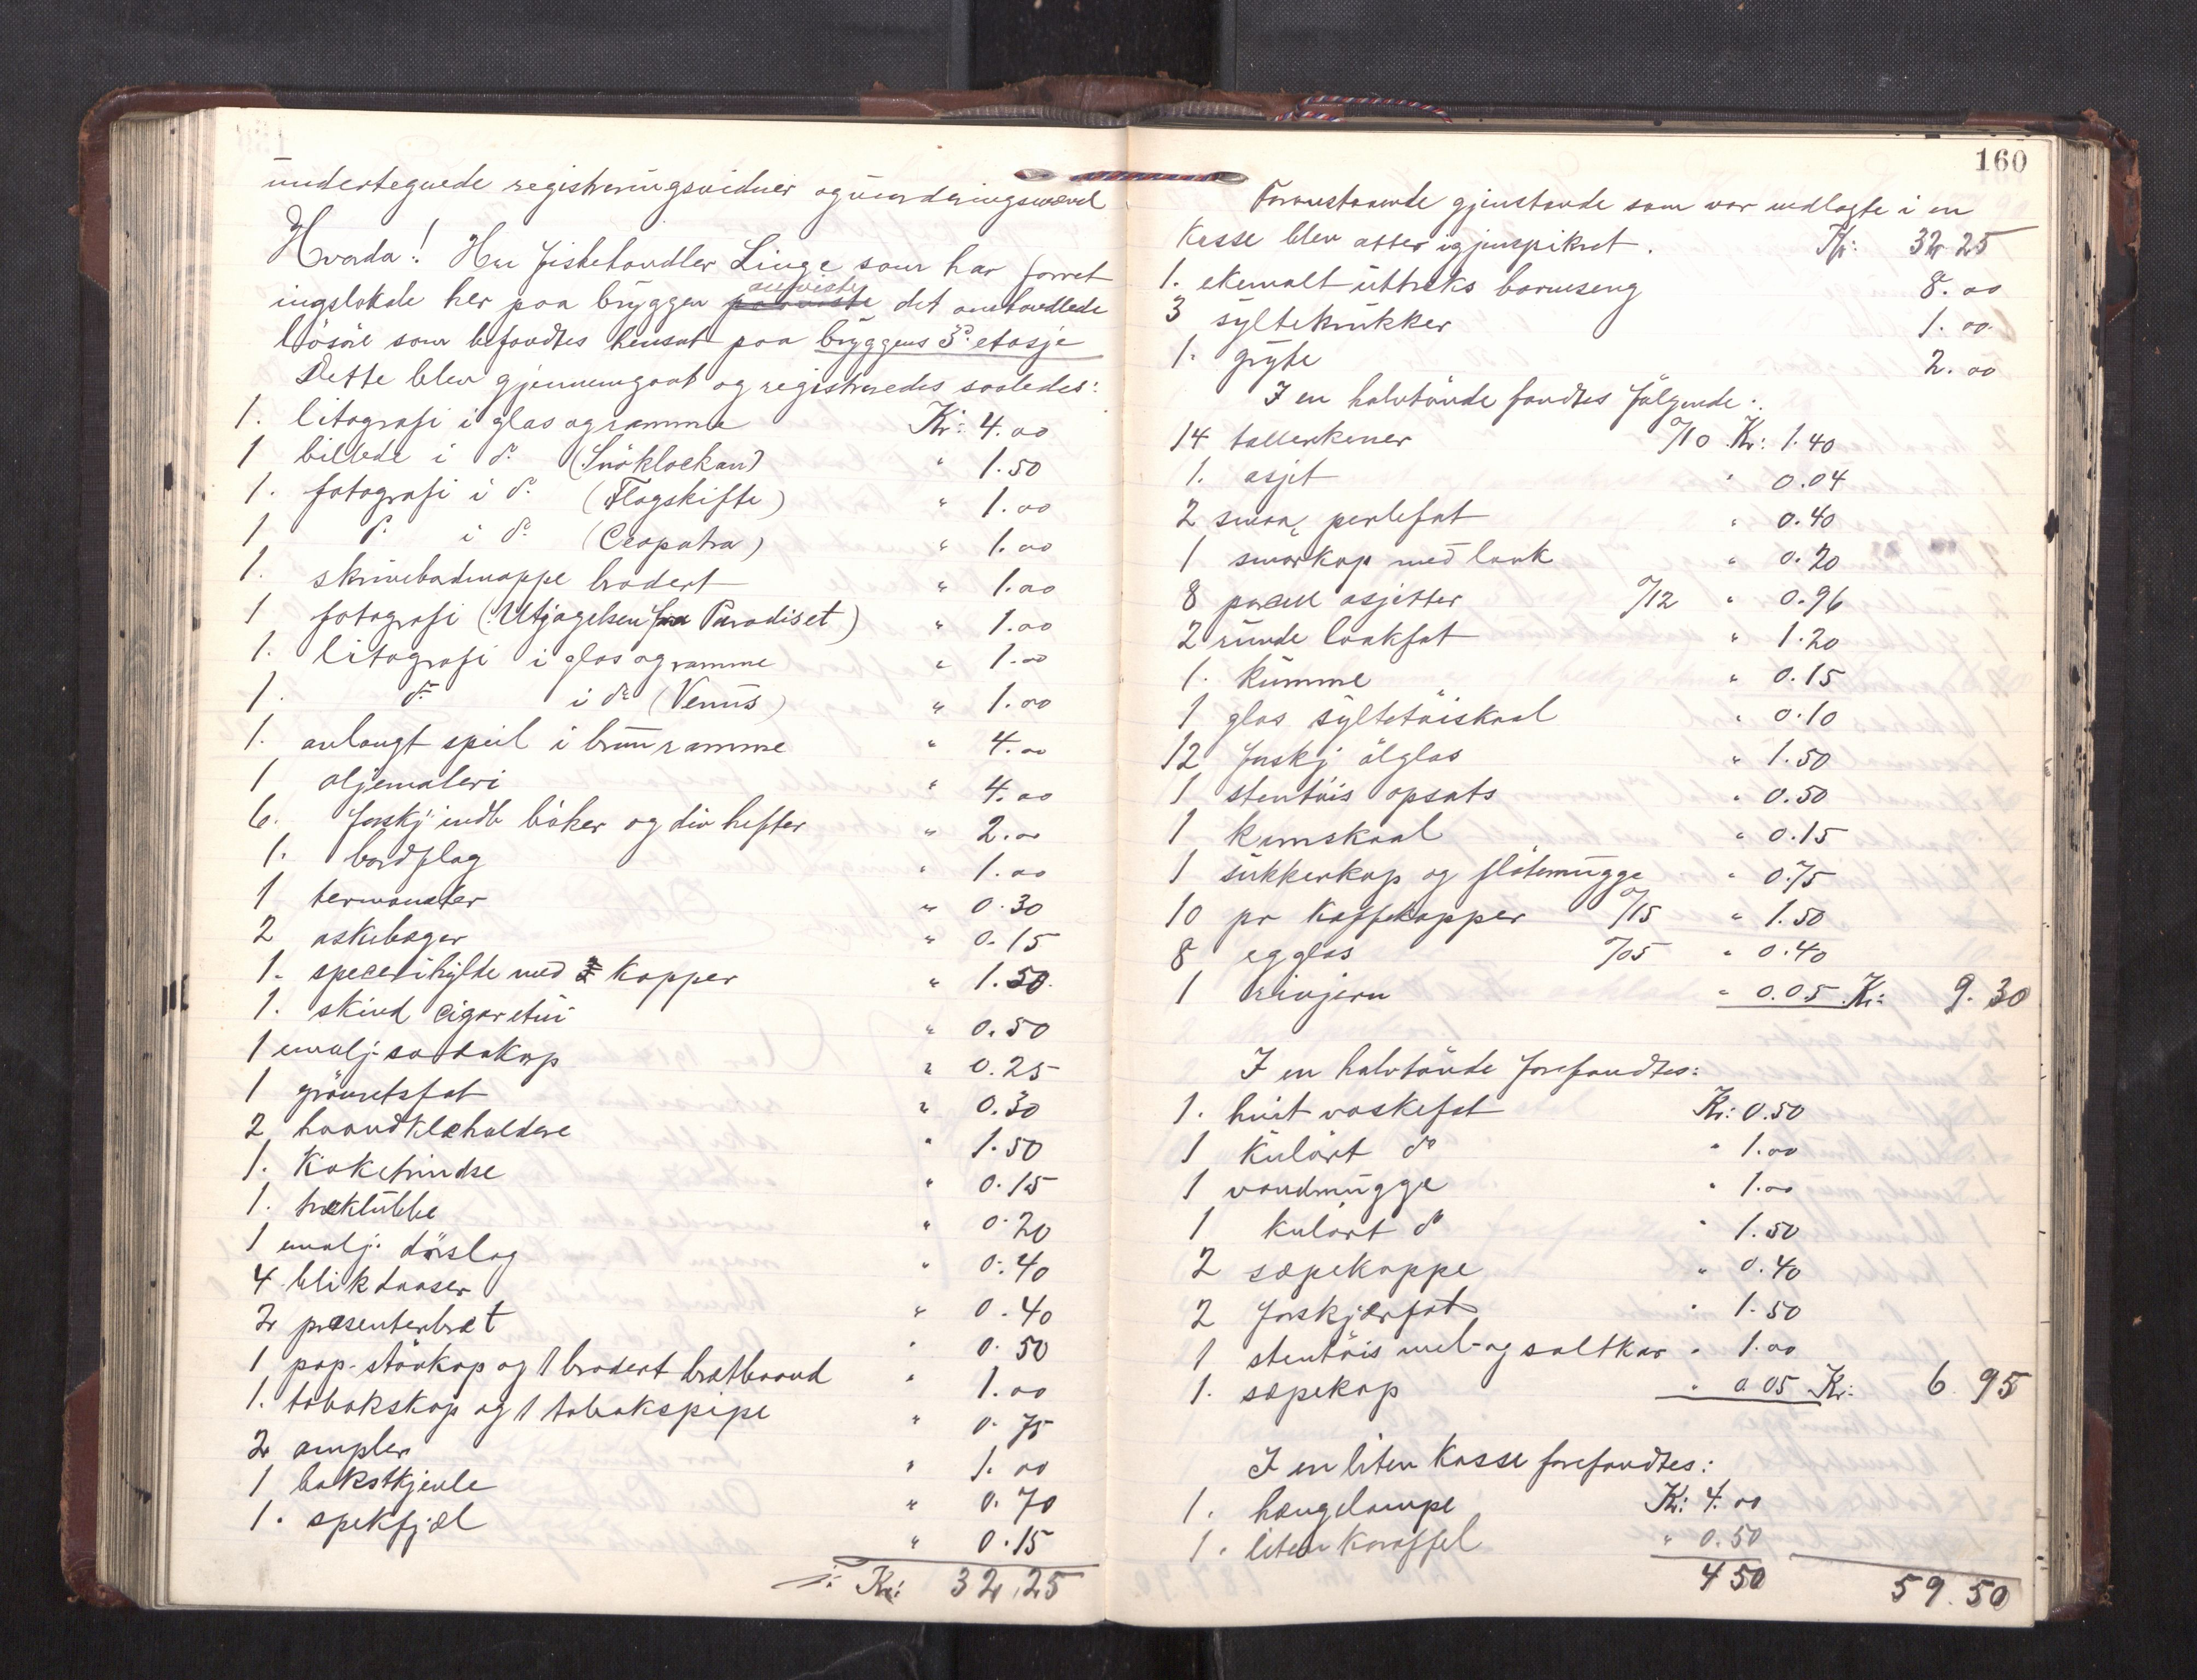 undertegnede registreringsvidner og vurderingsmænd
Hvorda! Hr fiskehandler Linge som har forret
ingslokale her paa bryggen paaviste anviste det omhandlede
lösöre som befandtes hensat paa bryggens 3die etasje
Dette blev gjennemgaat og registreredes saaledes:
1. litografi i glas og ramme Kr: 4.00
1 billede i do (Snöklockan) " 1.50
1. fotografi i do. (Flagskifte) " 1.00
1 do. i do. (Cleopatra) " 1.00
1. skrivebadmappe brodert " 1.00
1 fotografi (Utjagelsen fra Paradiset) " 1.00
1. litografi i glas og ramme " 1.00
1. do i do (Venus) " 1.00
1. avlangt speil i brun ramme " 4.00
1 oljemaleri " 4.00
6. forskj indb böker og div hefter " 2.00
1. bordflag " 1.00
1 termometer " 0.30
2 askebæger " 0.15
1. specerihylde med kopper " 1.50.
1. skind cigaretui " 0.50
1 emalj. sodakop " 0.25
1 grönsetsfat " 0.30
2 haandklæholdere " 1.50
1. Kaketrindse " 0.15
1. træklubbe " 0.20
1 emalj. dörslag " 0.40
4 blikdaaser " 0.40
2 presenterbret " 0.50
1 pap. stövkop og 1 brodert bretbaand " 1.00
1. tobakskop og 1 tobakspipe " 0.75
2 ampler " 1.00
1 bakstkjevle " 0.70
1. spekfjæl " 0.15
Kr: 32.25
160
Foranstaaende gjenstande som var nedlagte i en
Kasse blev atter igjenspikret. Kr: 32 25
1. ekemalt uttreks barneseng 8.00
3 syltekrukker 1.00
1. gryte 2.00
I en halvtönde fandtes fölgende:
14 tallerkener a/10 Kr: 1.40
1. asjet " 0.04
2 smaa perlefat " 0.40
1 smörkop med laak " 0.20
8 porcell asjetter a/12 " 0.96
2 runde laakfat " 1.20
1. Kumme " 0.15
1 glas syltetöiskaal " 0.10
12 forskj ölglas " 1.50
1 stentöis opsats " 0.50
1 Kumskaal " 0.15
1 sukkerkop og flötemugge " 0.75
10 pr Kaffekopper a/15 " 1.50
8 egglas a/05 " 0.40
1 rivjern " 0.05 Kr: 9.30
I en halvtönde forefandtes:
1. hvit vaskefat Kr: 0.50
1 Kulört do " 1.00
1 vandmugge " 1.00
1 kulört do " 1.50
2 sæpekoppe " 0.40
2 forskjærfat " 1.50
1 stentöis mel- og saltkar " 1.00
1. sæpekop " 0.05 Kr: 6 95
I en liten Kasse forefandtes:
1. hængelampe Kr: 4.00
1. liten Karaffel " 0.50
4 50 59.50